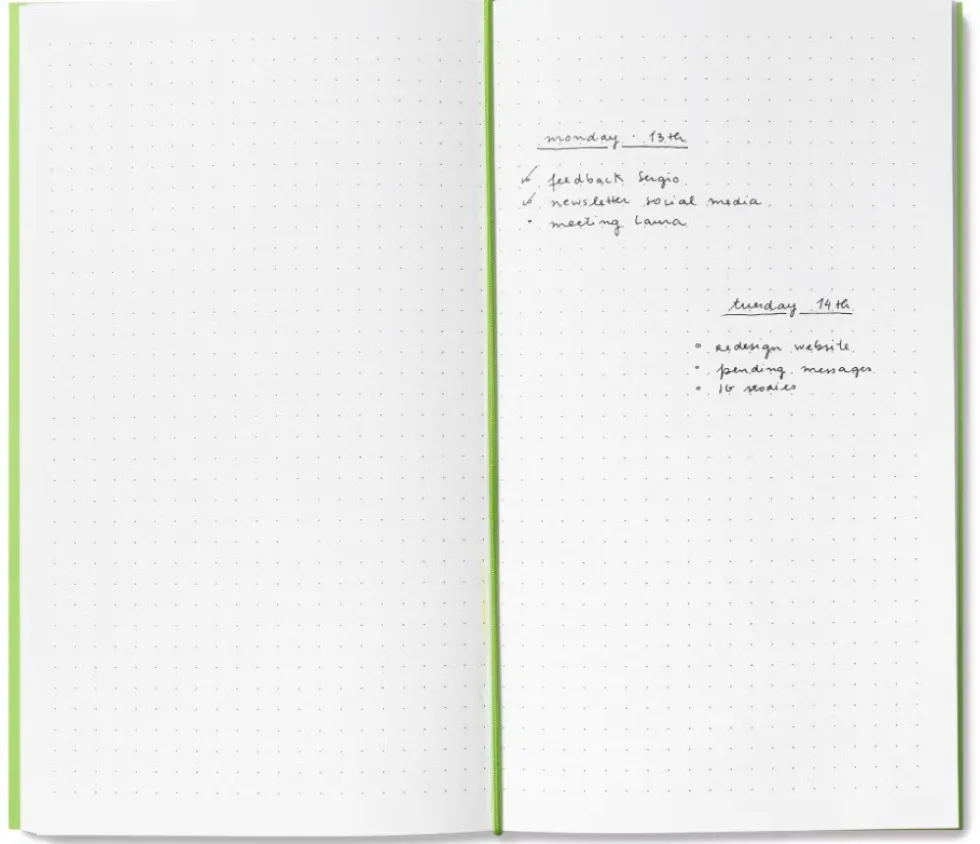 monday · 13th
✓ feedback Sergio
✓ newsletter social media
• meeting Laura
tuesday 14th
• redesign website
• pending messages
• IG stories